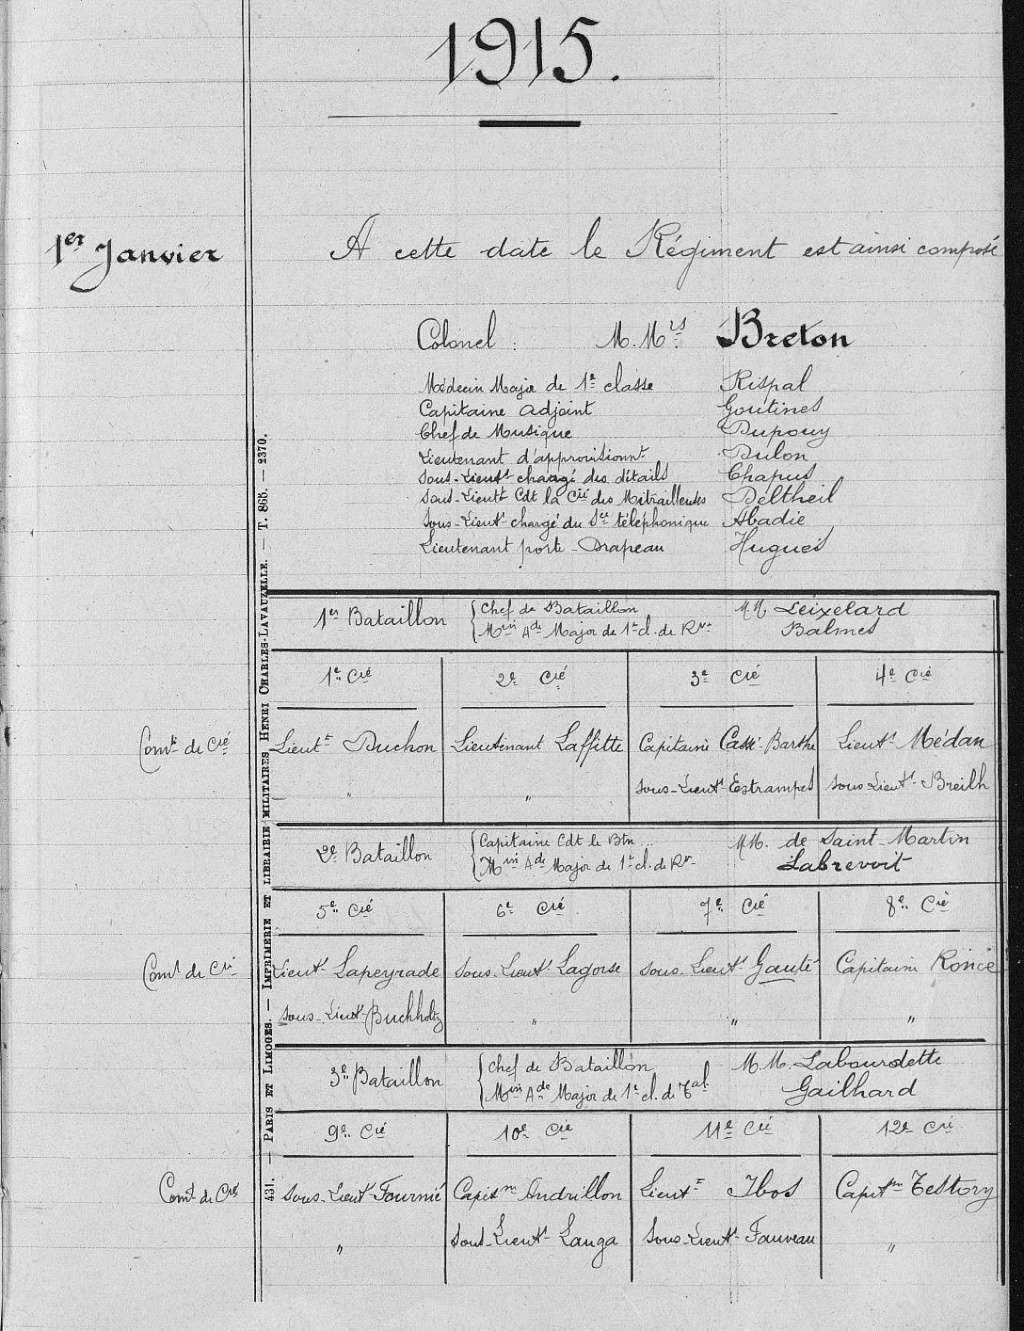 1915.
1er Janvier
A cette date le Régiment est ainsi composé
Colonel : M.Mrs Breton
Médecin Major de 1e classe Rispal
Capitaine adjoint Goutines
Chef de Musique Dupouy
Lieutenant d'approvisionnt Dulon
Sous-Lieutt chargé des détails Chapus
Sous-Lieutt Cdt la Cie des Mitrailleuses Deltheil
Sous-Lieutt chargé du Sce téléphonique Abadie
Lieutenant porte-Drapeau Hugues
1er Bataillon { Chef de Bataillon M.M. Leixelard
Min Ade Major de 1e cl. de Rve Balmes
1e Cie 2e Cie 3e Cie 4e Cie
Comt de Cie Lieutt Duchon Lieutenant Laffitte Capitaine Cassé-Barthe Lieutt Médan
" " Sous-Lieutt Estrampes Sous-Lieutt Breilh
2e Bataillon { Capitaine Cdt le Btn ... MM. de Saint-Martin
Min Ade Major de 1e cl. de Rve Labrevoit
5e Cie 6e Cie 7e Cie 8e Cie
Comt de Cie Lieutt Lapeyrade Sous-Lieutt Lagorse Sous-Lieutt Gauté Capitaine Roncé
Sous-Lieutt Buchholtz " " "
3e Bataillon { Chef de Bataillon M.M. Labourdette
Min Ade Major de 1e cl. de Tal. Gailhard
9e Cie 10e Cie 11e Cie 12e Cie
Comt de Cies Sous-Lieutt Fournié Capitne Andrillon Lieutt Ibos Capitne Testory
" Sous-Lieutt Langa Sous-Lieutt Fauveau "
431. — PARIS ET LIMOGES. — IMPRIMERIE ET LIBRAIRIE MILITAIRES HENRI CHARLES-LAVAUZELLE. — T. 868. — 2370.